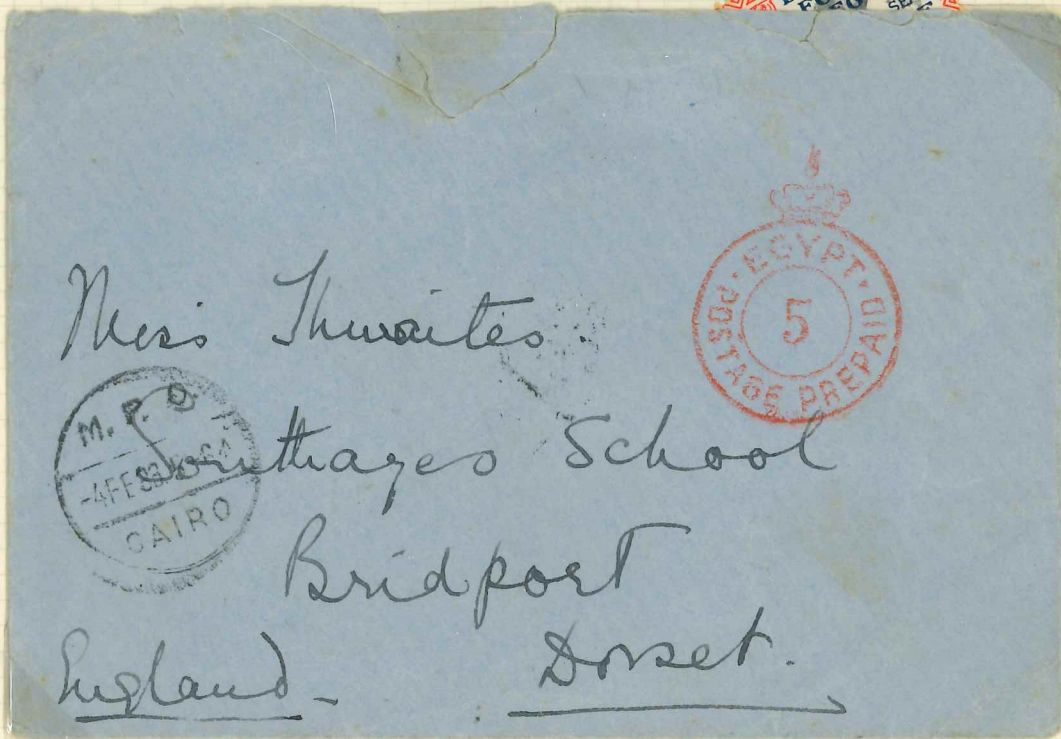 EGYPT
POSTAGE PREPAID
5
Miss Thwaites.
M. P. O
-4 FE
CAIRO
Southayes School
Bridport
Dorset.
England